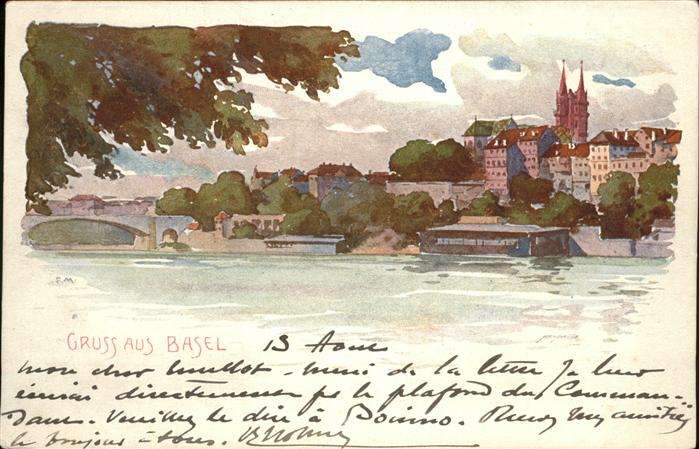 F.M.
GRUSS AUS BASEL 13 Aout
mon cher - merci de la lettre Je leur
écrirai directement pr le plafond du Comman-
dant. Veuillez le dire à mes amitiés
le bonjour à tous.